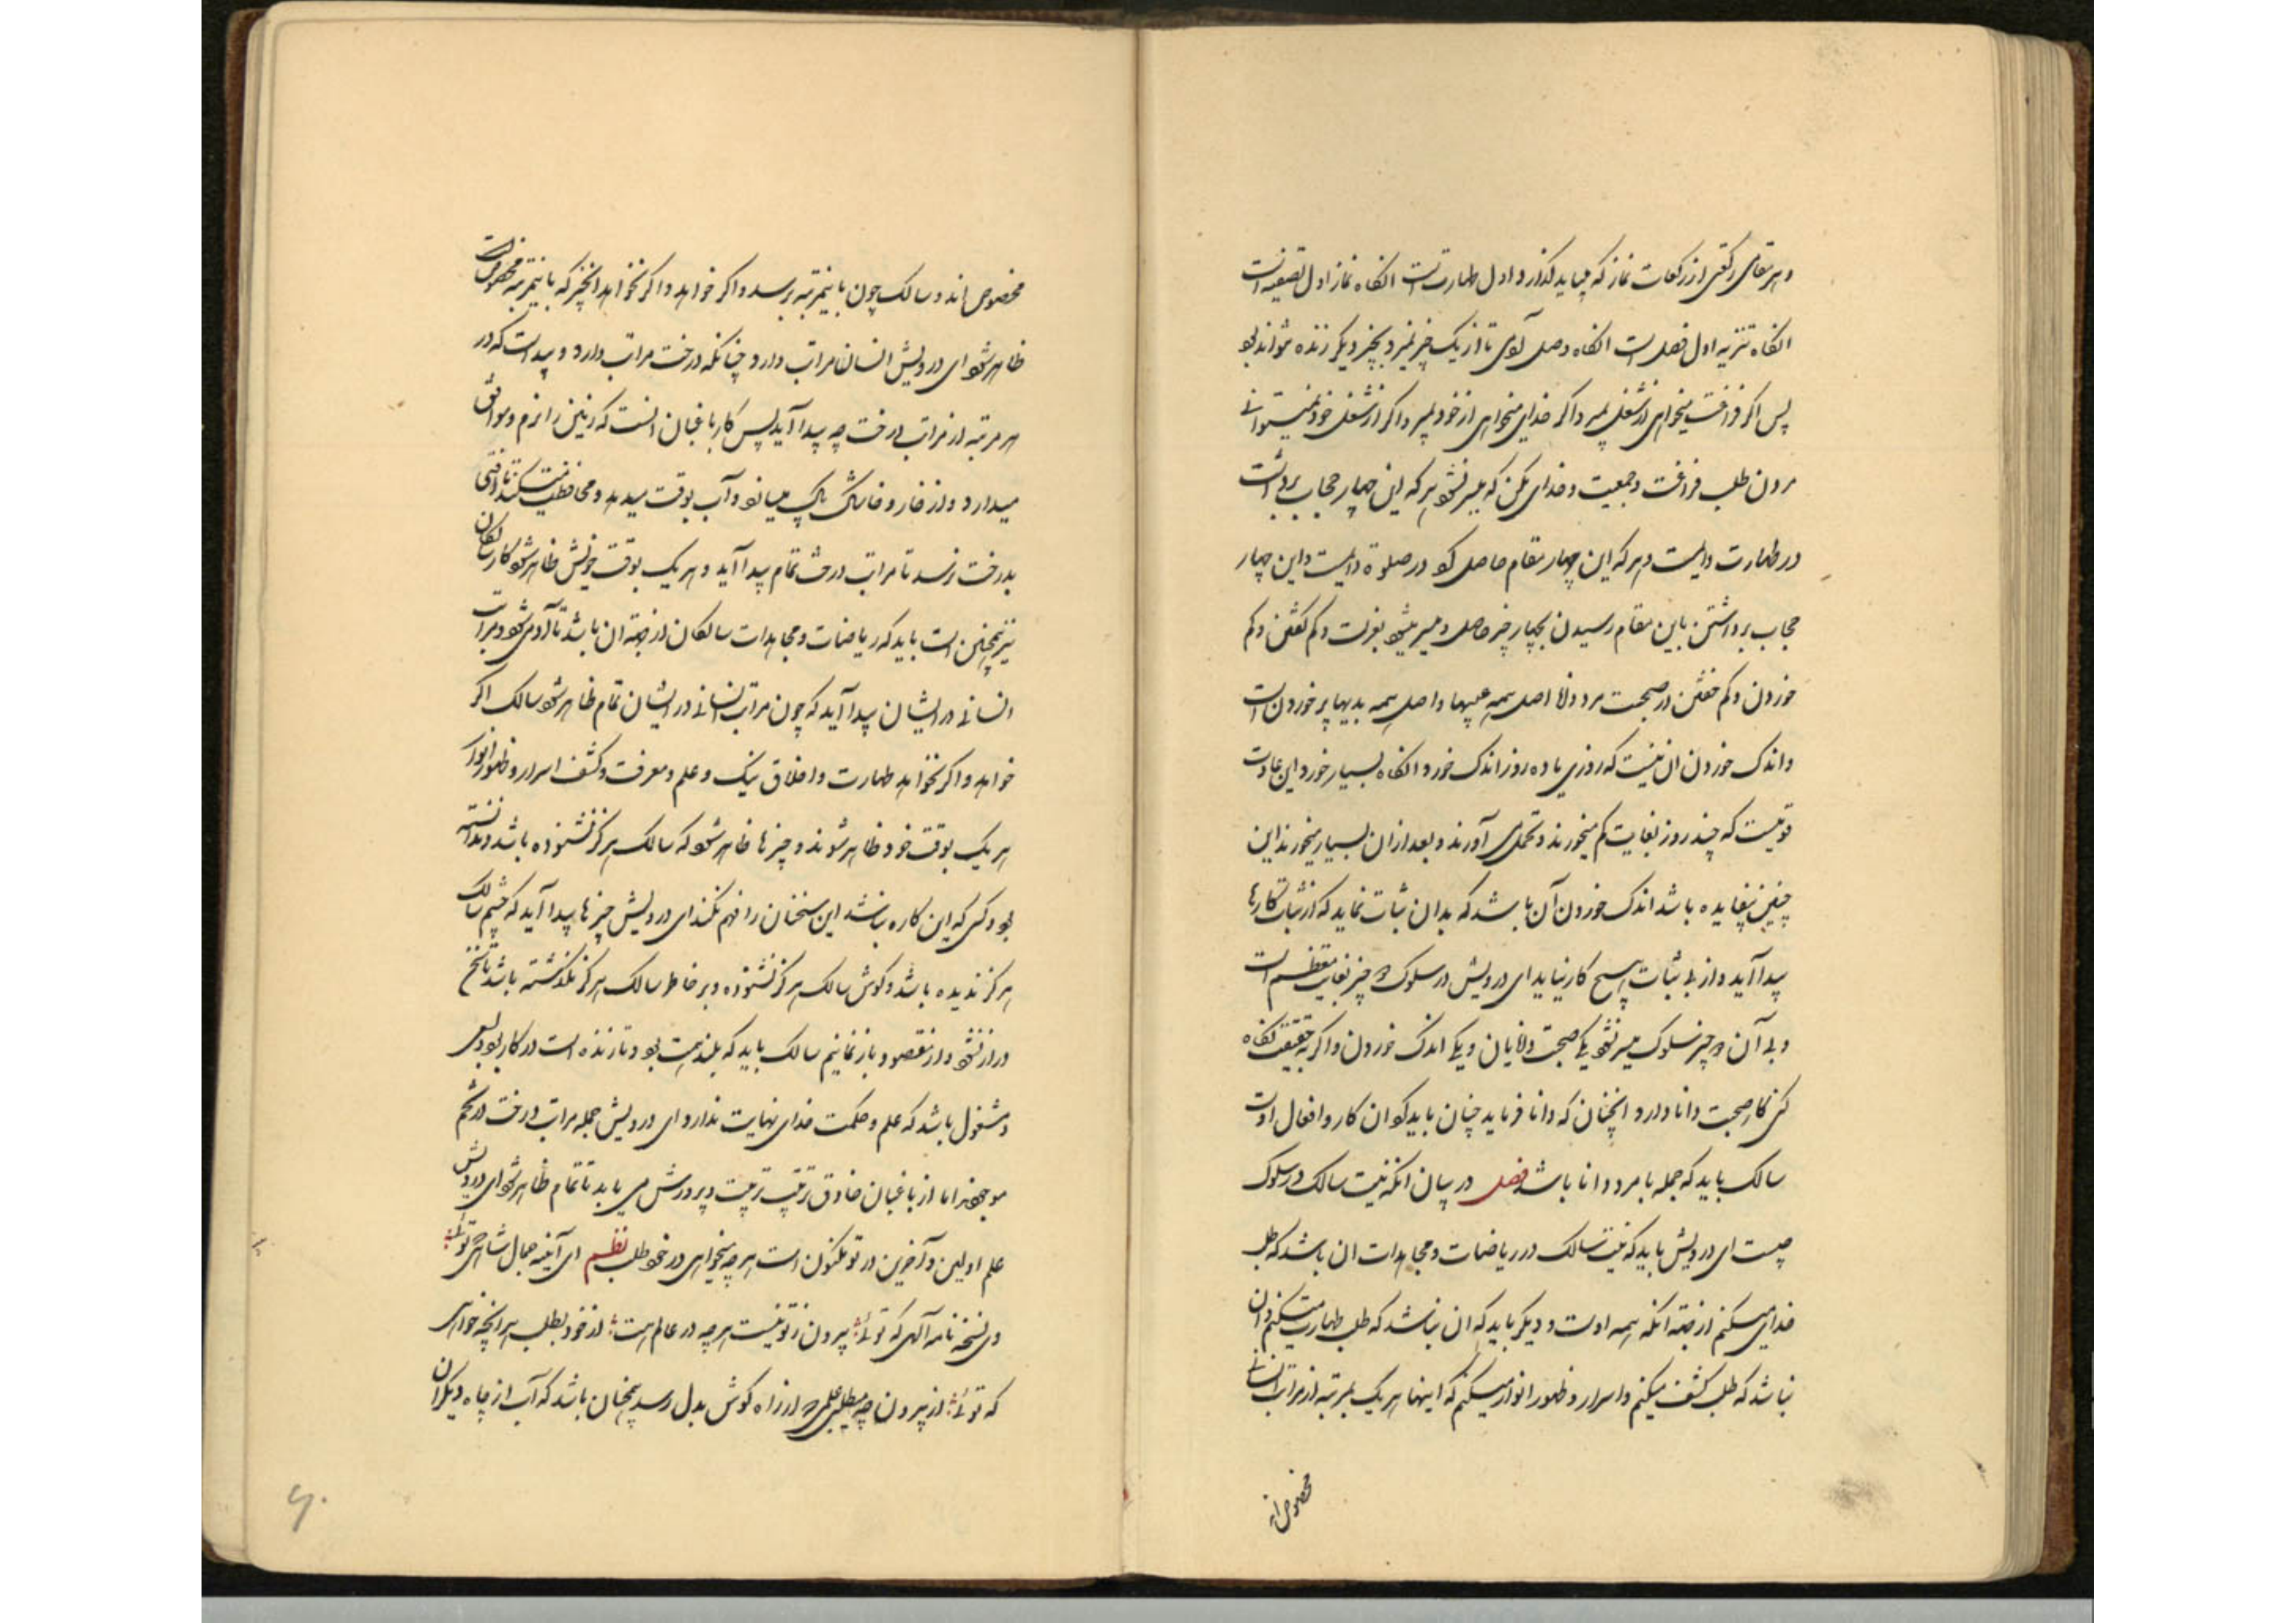 و هر مقامی رکعتی از رکعات نماز که میباید گذارد و اول طهارتست انگاه نماز اول تصفیه است
انگاه تنزیه اول فصل است انگاه وصل آوی تا از یک چیز نمیرد بچیز دیگر زنده نتواند بود
پس اگر فراغت میخواهی از شغل بمیر و اگر خدای میخواهی از خود بمیر و اگر از شغل خود نمیتوانی
مردن طلب فراغت و جمعیت و خدای مکن که میسر نشود هر که این چهار حجاب برداشت
در طهارت دایمست و هر که این چهار مقام حاصل کرد در صلوة دایمست و این چهار
حجاب برداشتن باین مقام رسیدن بچهار چیز حاصل و میسر میشود بعزلت و کم گفتن و کم
خوردن و کم خفتن در صحبت مرد دانا اصل همه عیبها و اصل همه بدیها پر خوردن است
و اندک خوردن ان نیست که روزی یا ده روز اندک خورد و انگاه بسیار خورد و این عادت
قومیست که چند روز بغایت کم میخورند و تحمل می آورند و بعد از ان بسیار میخورند این
چنین بیفایده باشد اندک خوردن آن باشد که بدان ثبات نماید که از ثبات کارها
پیدا آید و از بی ثبات هیچ کار نیاید ای درویش در سلوک دو چیز بغایت معظم است
و بی آن دو چیز سلوک میسر نشود یکی صحبت دانایان و یکی اندک خوردن و اگر بحقیقت نگاه
کنی کار صحبت دانا دارد و انچنان که دانا فرماید چنان باید کرد ان کار و افعال اوست
سالک باید که جمله با مرد دانا باشد فصل در بیان انکه نیت سالک در سلوک
چیست ای درویش باید که نیت سالک در ریاضات و مجاهدات ان باشد که طلب
خدای میکنم از جهة انکه همه اوست و دیگر باید که ان نباشد که طلب طهارت میکنم و ان
نباشد که طلب کشف میکنم و اسرار و ظهور انوار میکنم که اینها هر یک بمرتبه از مراتب انسانی
مخصوص اند
مخصوص اند و سالک چون باینمرتبه برسد و اگر خواهد و اگر نخواهد انچیز که باینمرتبه مخصوص است
ظاهر شود ای درویش انسان مراتب دارد چنانکه درخت مراتب دارد و پیداست که در
هر مرتبه از مراتب درخت چه پیدا آید پس کار باغبان انست که زمین را نرم و موافق
میدارد و از خار و خاشاک پاک میسازد و آب بوقت میدهد و محافظت میکند تا آفتی
بدرخت نرسد تا مراتب درخت تمام پیدا آید و هر یک بوقت خویش ظاهر شود کار سالکان
نیز همچنین است باید که ریاضات و مجاهدات سالکان از جهة ان باشد تا آدمی شود و مراتب
انسانی در ایشان پیدا آید که چون مراتب انسانی در ایشان تمام ظاهر شود سالک اگر
خواهد و اگر نخواهد طهارت و اخلاق نیک و علم و معرفت و کشف اسرار و ظهور انوار
هر یک بوقت خود ظاهر شوند و چیزها ظاهر شود که سالک هرگز نشنوده باشد و ندانسته
بود و کسی که این کاره نباشد این سخنان را فهم نکند ای درویش چیزها پیدا آید که چشم سالک
هرگز ندیده باشد و گوش سالک هرگز نشنوده و بر خاطر سالک هرگز نگذشته باشد تا سخن
دراز نشود و از مقصود باز نمانیم سالک باید که بلند همت بود و تا زنده است در کار بود و بسعی
مشغول باشد که علم و حکمت خدای نهایت ندارد ای درویش جمله مراتب درخت در تخم
موجودند اما از باغبان حاذق ترتیب تربیت و پرورش می باید تا تمام ظاهر شود ای درویش
علم اولین و آخرین در تو مکنون است هر چه میخواهی در خود طلب نظم ای آینه جمال شاهی که توئی
وی نسخه نامه آلهی که توئی بیرون ز تو نیست هر چه در عالم هست از خود بطلب هر انچه خواهی
که توئی از بیرون چه میطلبی علمی که از راه گوش بدل رسد همچنان باشد که آب از چاه دیگران